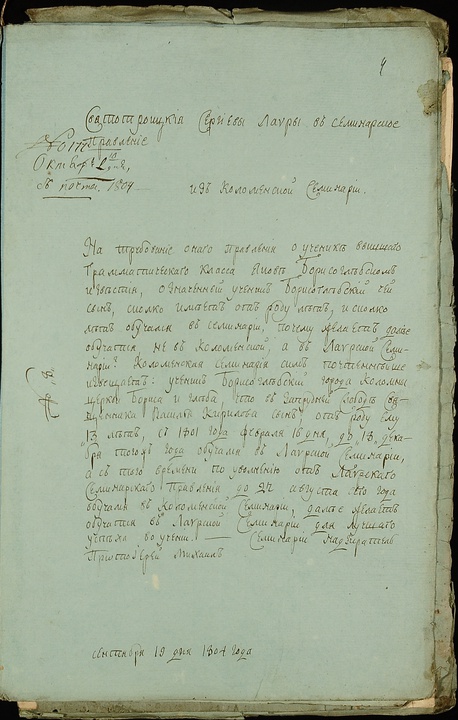 4
Святотроицкія Сергіевы Лавры въ семинарское
Правленіе
Октябр:
съ почты. 1804
изъ Коломенской Семинаріи.
На требованіе онаго Правленія о ученикѣ вышшаго
Грамматическаго класса Яковѣ Борисоглѣбскомъ
извѣстія, означенный ученикъ Борисоглѣбскій чей
сынъ, сколко имѣетъ отъ роду лѣтъ, и сколко
лѣтъ обучался въ семинаріи, почему желаетъ далѣе
обучатся не въ Коломенской, а въ Лаврской Семи-
наріи? Коломенская Семинарія симъ почтеннѣйше
извѣщаетъ: ученикъ Борисоглѣбскій города Коломны
церкви Бориса и Глѣба, что въ Запрудной слободѣ Свя-
щенника Павла Кирилова сынъ отъ роду ему
13 лѣтъ, съ 1801 года февраля 16 дня, до 13 дека-
бря года обучался въ Лаврской Семинаріи,
а съ того времени по уволненію отъ Лаврскаго
Семинарскаго Правленія до 22 августа сего года
обучался въ Коломенской Семинаріи, далѣе желаетъ
обучатся въ Лаврской Семинаріи для лучшаго
успѣха во ученіи. — Семинаріи надзиратель
Протоіерей Михаилъ
сентября 19 дня 1804 года